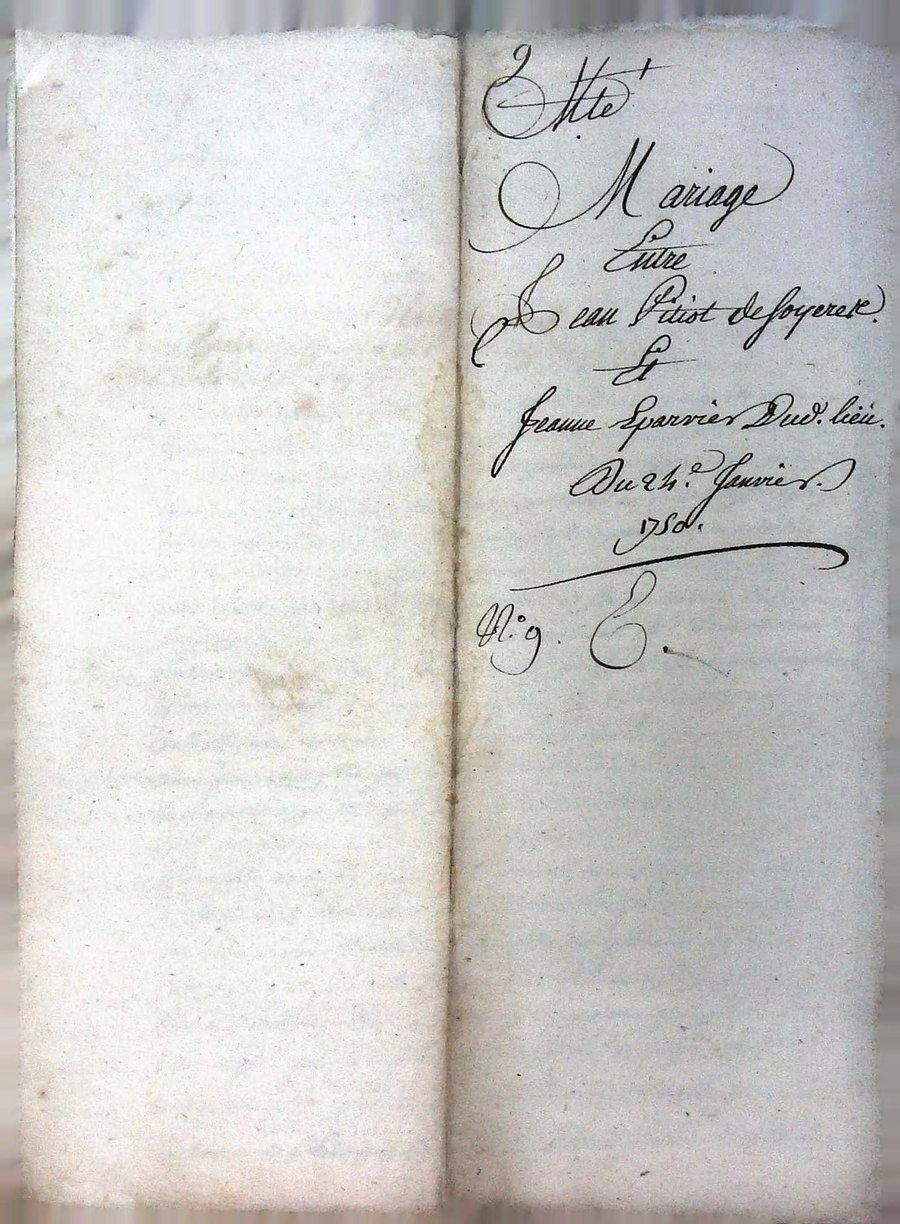 Mariage
Entre
Jean Pitiot de Soyere
Et
Jeanne Eparvier Dud. lieu.
Du 24.e Janvier.
1750.
N.o 9. E.